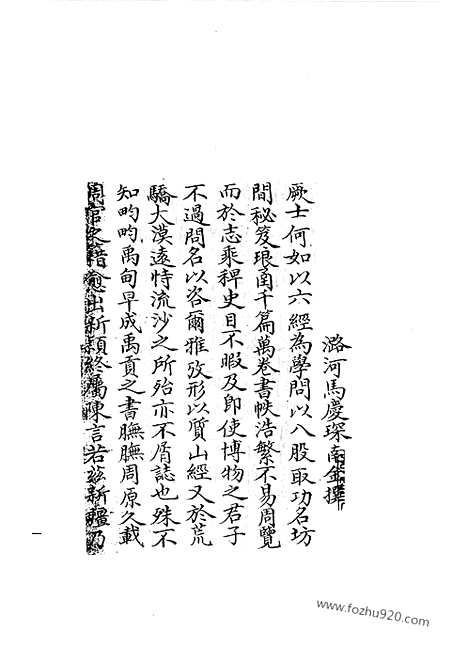 潞河馬慶琛南金撰
厥士何如以六經為學問以八股取功名坊
間秘笈琅函千篇萬卷書帙浩繁不易周覽
而於志乘稗史目不暇及即使博物之君子
不過問名以咨爾雅攷形以質山經又於荒
驕大漠遠恃流沙之所殆亦不屑誌也殊不
知畇畇禹甸早成禹貢之書膴膴周原久載
周官之籍愈出新穎終屬陳言若茲新疆乃
一
www.fozhu920.com